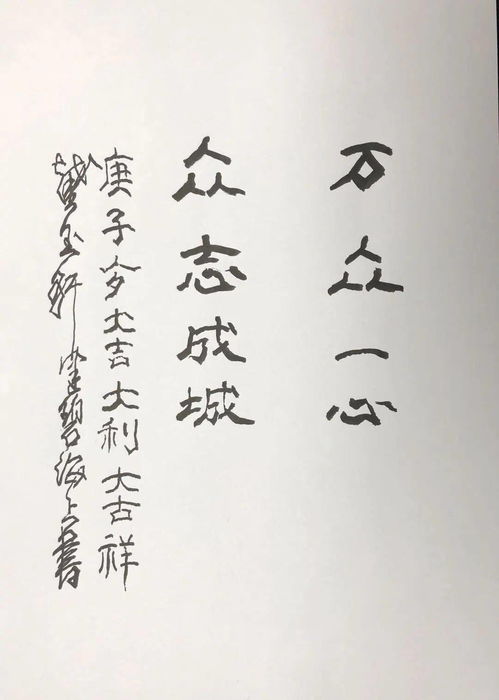 万众一心
众志成城
庚子大吉大利大吉祥
玉轩海上